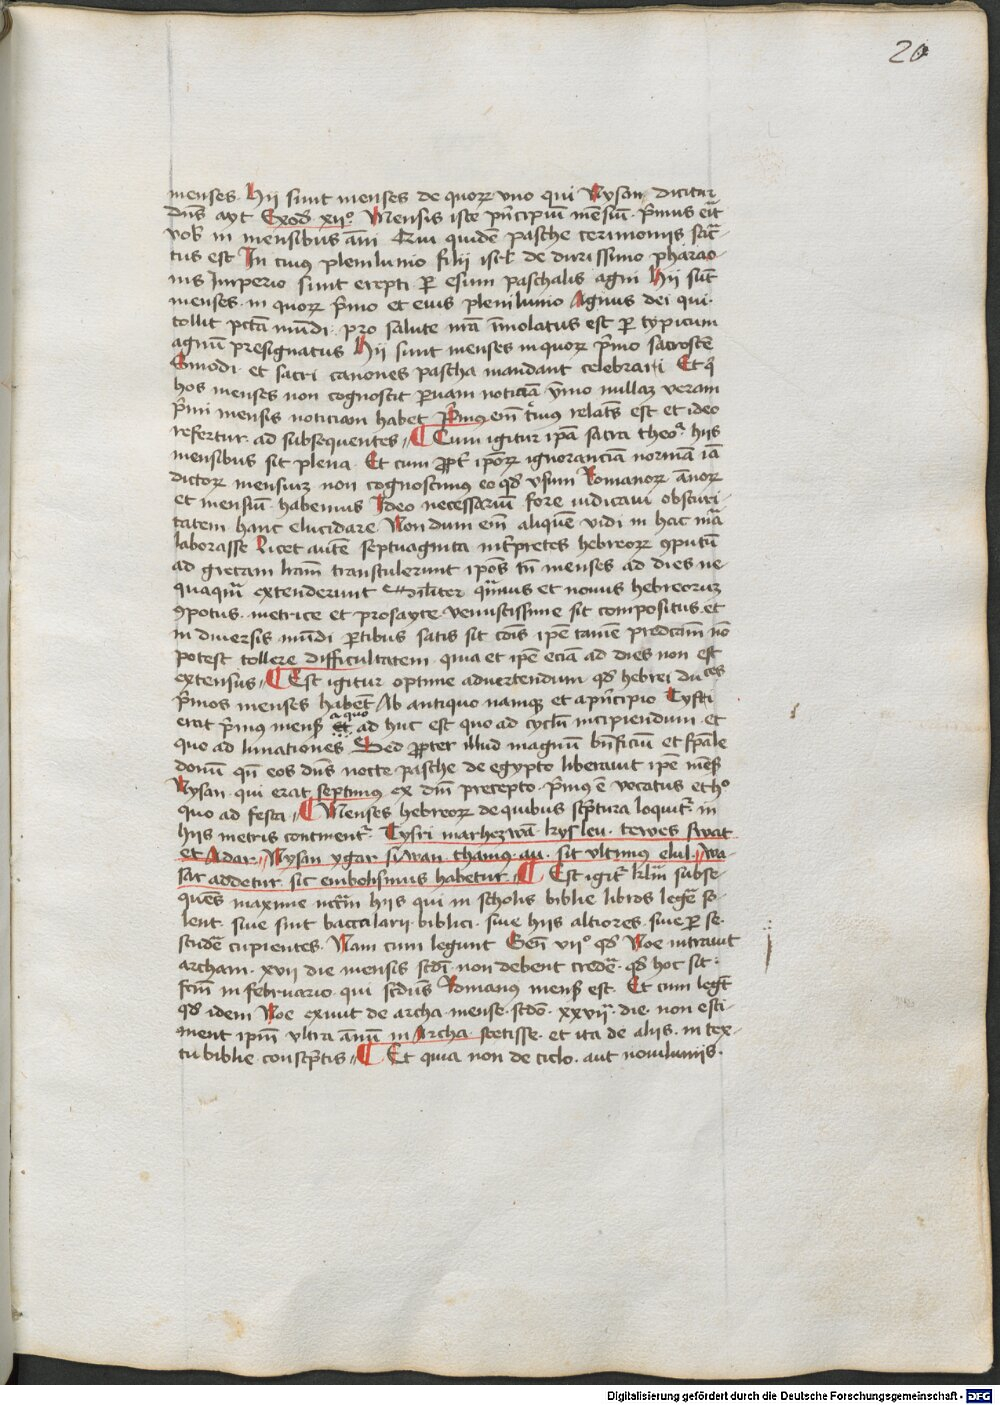 20
menses. Hii sunt menses de quoꝝ vno qui Nysan dicitur
dn̄s ayt Exod̄ xijº. Mensis iste pͥncipiū mēsiū. pͥmus eīt
vob̄ in mensibus āni Qui quidē pasche cerimoniis sāc-
tus est In cuiꝰ plenilunio filij isrl̄ de durissimo pharao-
nis Imperio sunt erepti ꝑ esum paschalis agni Hij sūt
menses in quoꝝ pͥmo et eius plenilunio Agnus dei qui
tollit pctā mūdi. pro salute nrā īmolatus est ꝑ typicum
agnū presignatus Hij sunt menses in quoꝝ pͥmo sacroscē
Sinodi et sacri canones pascha mandant celebrari Et qͥ
hos menses non cognoscit ꝑuam noticiā ymo nullaꝫ veram
pͥmi mensis noticiam habet Pͥmꝰ em̄ relatꝰ est et ideo
refertur ad subsequentes ¶ Cum igitur ipā sacra theoᵃ hijs
mensibus sit plena. Et cum ꝓpt̄ ipoꝝ ignoranciā normā iā
dictoꝝ mensiuꝫ non cognoscimus eo qd̄ vsum Romanoꝝ ānoꝝ
et mensiū habemus Ideo necessariū fore iudicaui obscuri-
tatem hanc elucidare Non dum em̄ aliquē vidi in hac mͣa
laborasse Licet autē septuaginta int̄pretes hebreoꝝ ꝯputū
ad grecam lrām transtulerunt ipōs tn̄ menses ad dies ne-
quaqͣm extenderunt Sil̄iter qͣmuis et nouus hebreoruꝫ
ꝯpotus metrice et prosayce venustissime sit compositus et
in diuersis mūdi ꝑtibus satis sit cōis ipē tamē predcām nō
potest tollere difficultatem quia et ipē eciā ad dies non est
extensus ¶ Est igitur optime aduertendum qd̄ hebrei duces
pͥmos menses habēt Ab antiquo namqꝫ et a pͥncipio Tysri
erat pͥmus mens̄ a quo ad huc est quo ad cyclū incipiendum et
quo ad lunationes Sed ꝓpter illud magnū bn̄ficiū et spāle
donū qn̄ eos dn̄s nocte pasche de egypto liberauit ipē mēs̄
Nysan qui erat septimus ex dnī precepto pͥmus ē vocatus et hº
quo ad festa ¶ Menses hebreoꝝ de quibus scptura loquit̄ in
hijs metris continent̄ Tysri marhezwā kysleu. tewes swat
et Adar Nysan ygar siwan thamꝰ au. sit vltimus elul wa-
sar addetur sic embolismus habetur ¶ Est igit̄ subse-
quēs maxime hijs qui in scholis biblie libros legē̄ so-
lent siue sint baccalarij biblici siue hijs altiores siue ꝑ se
studē̄ cupientes Nam cum legunt Gen̄ vijº qd̄ Noe intrauit
archam xvij die mensis scd̄i non debent credē̄ qd̄ hoc sit
fcm̄ in februario qui scd̄us Romanus mens̄ est. Et cum legūt
qd̄ idem Noe exiuit de archa mense scdō xxvijᵃ die non esti-
ment ipm̄ vltra ānū in Archa stetisse et ita de alijs in tex-
tu biblie conscptis ¶ Et quia non de ciclo aut nouilunijs
Digitalisierung gefördert durch die Deutsche Forschungsgemeinschaft - DFG